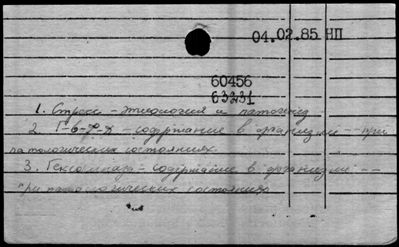 04.02.85 НП
60456
63231
1. Стресс - этиология и патогенез
2. Г-6-Ф-Д - содержание в организме -- при
патологических состояниях.
3. Гексокиназа - содержание в организме --
при патологических состояниях